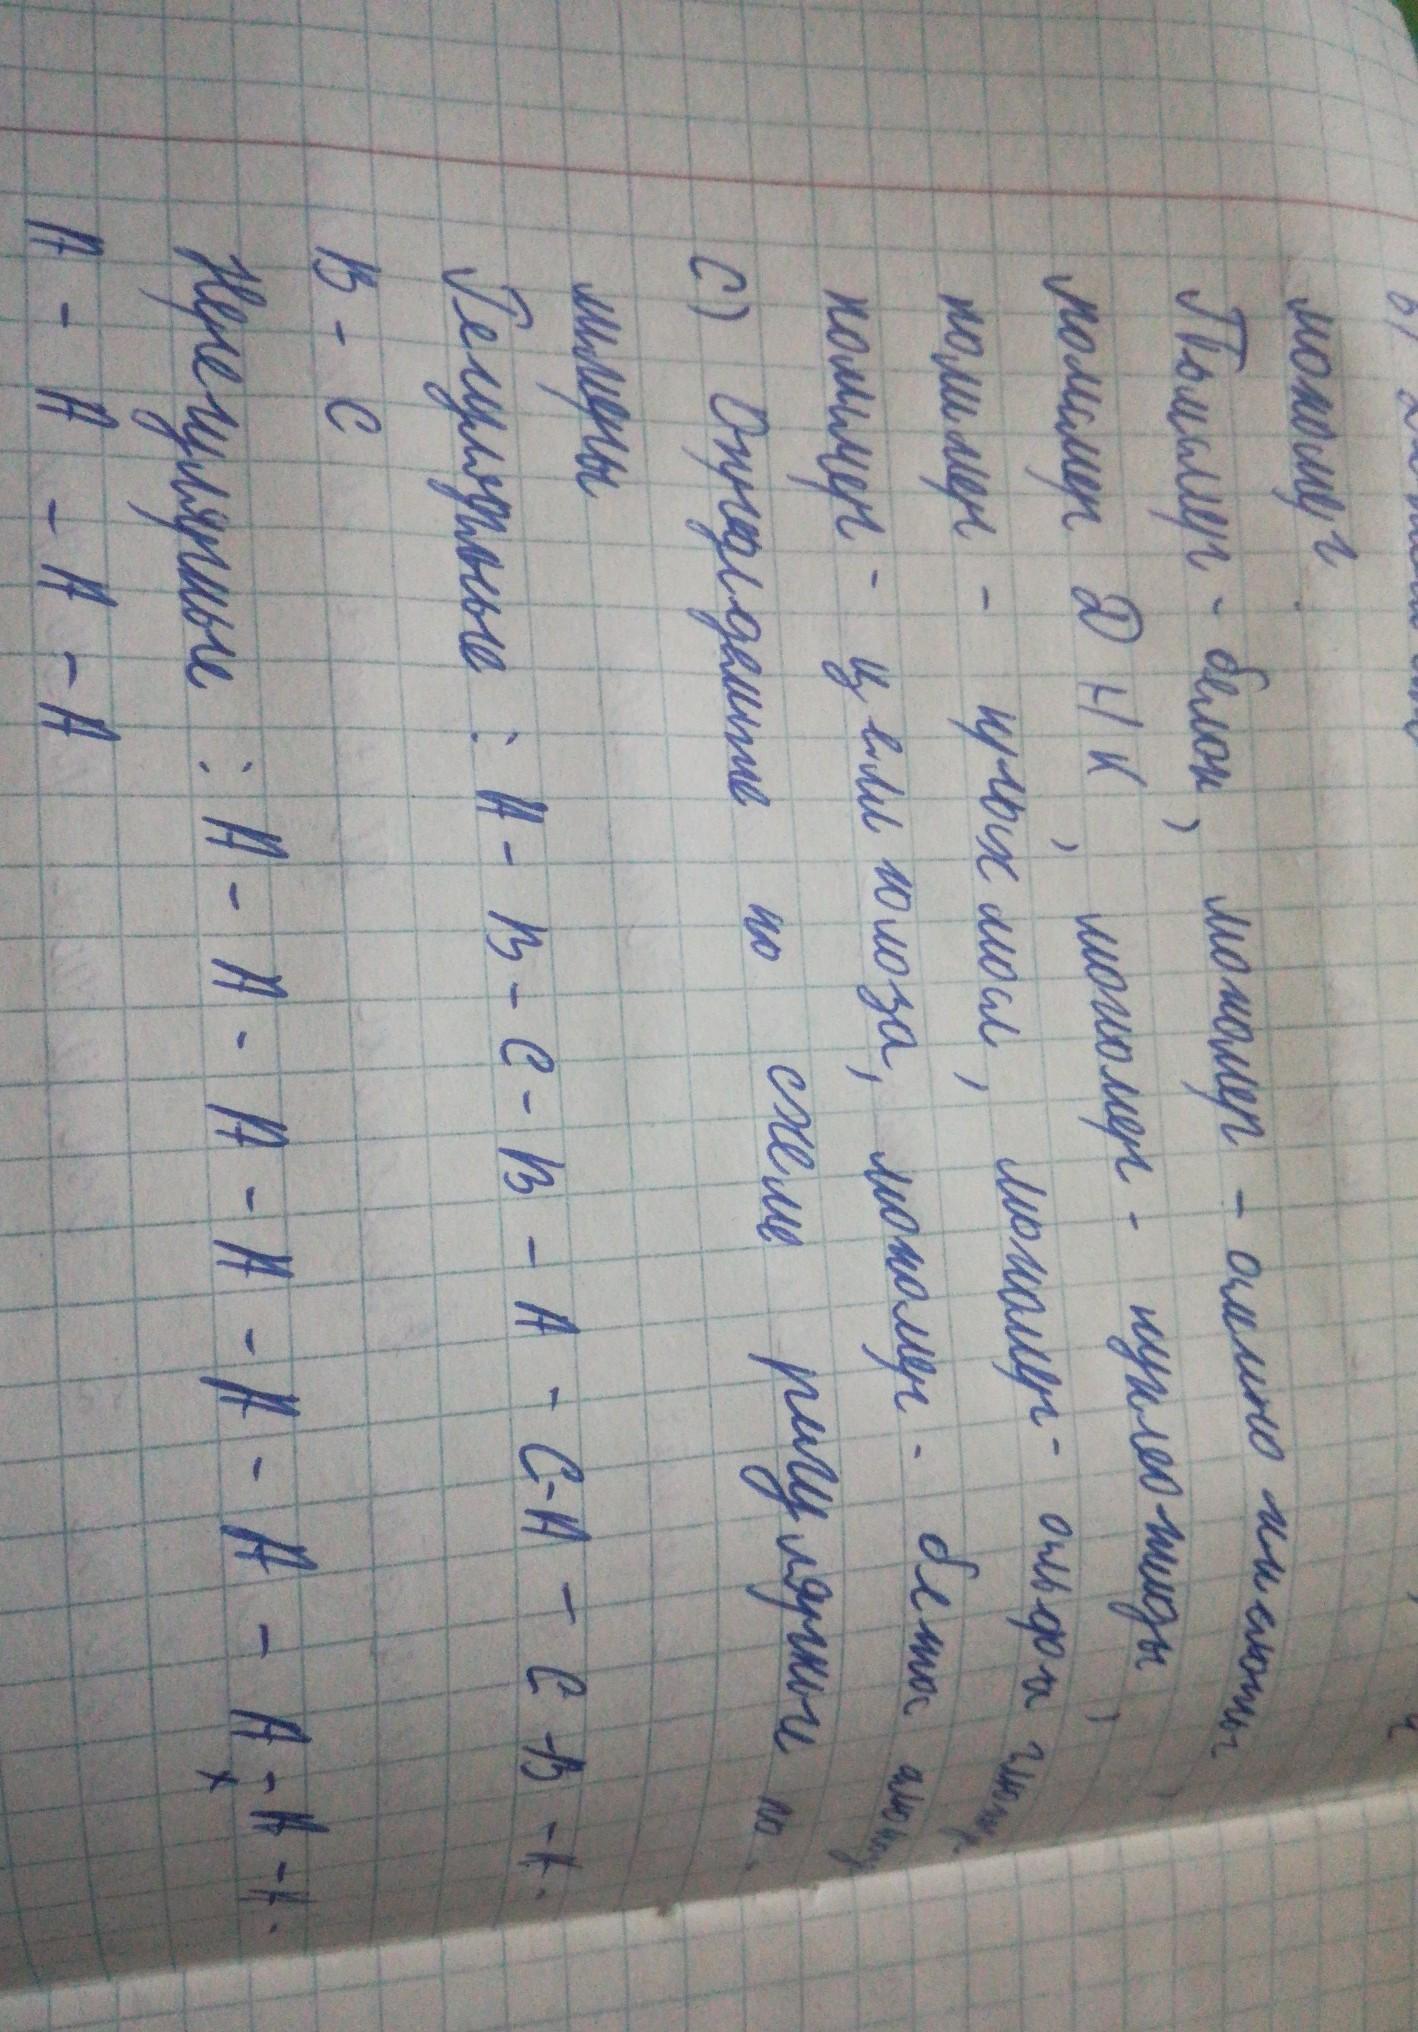 мономер
Полимер - белок, мономер - аминокислоты
полимер ДНК, мономер - нуклеотиды,
полимер - крахмал, мономер - альфа глюк
полимер - целлюлоза, мономер - бетта глюк
C) Определите по схеме регулярные по
лимеры
Регулярные : A - B - C - B - A - C - A - C - B - A.
B - C
Нерегулярные : A - A - A - A - A - A - A - A - A.
A - A - A - A